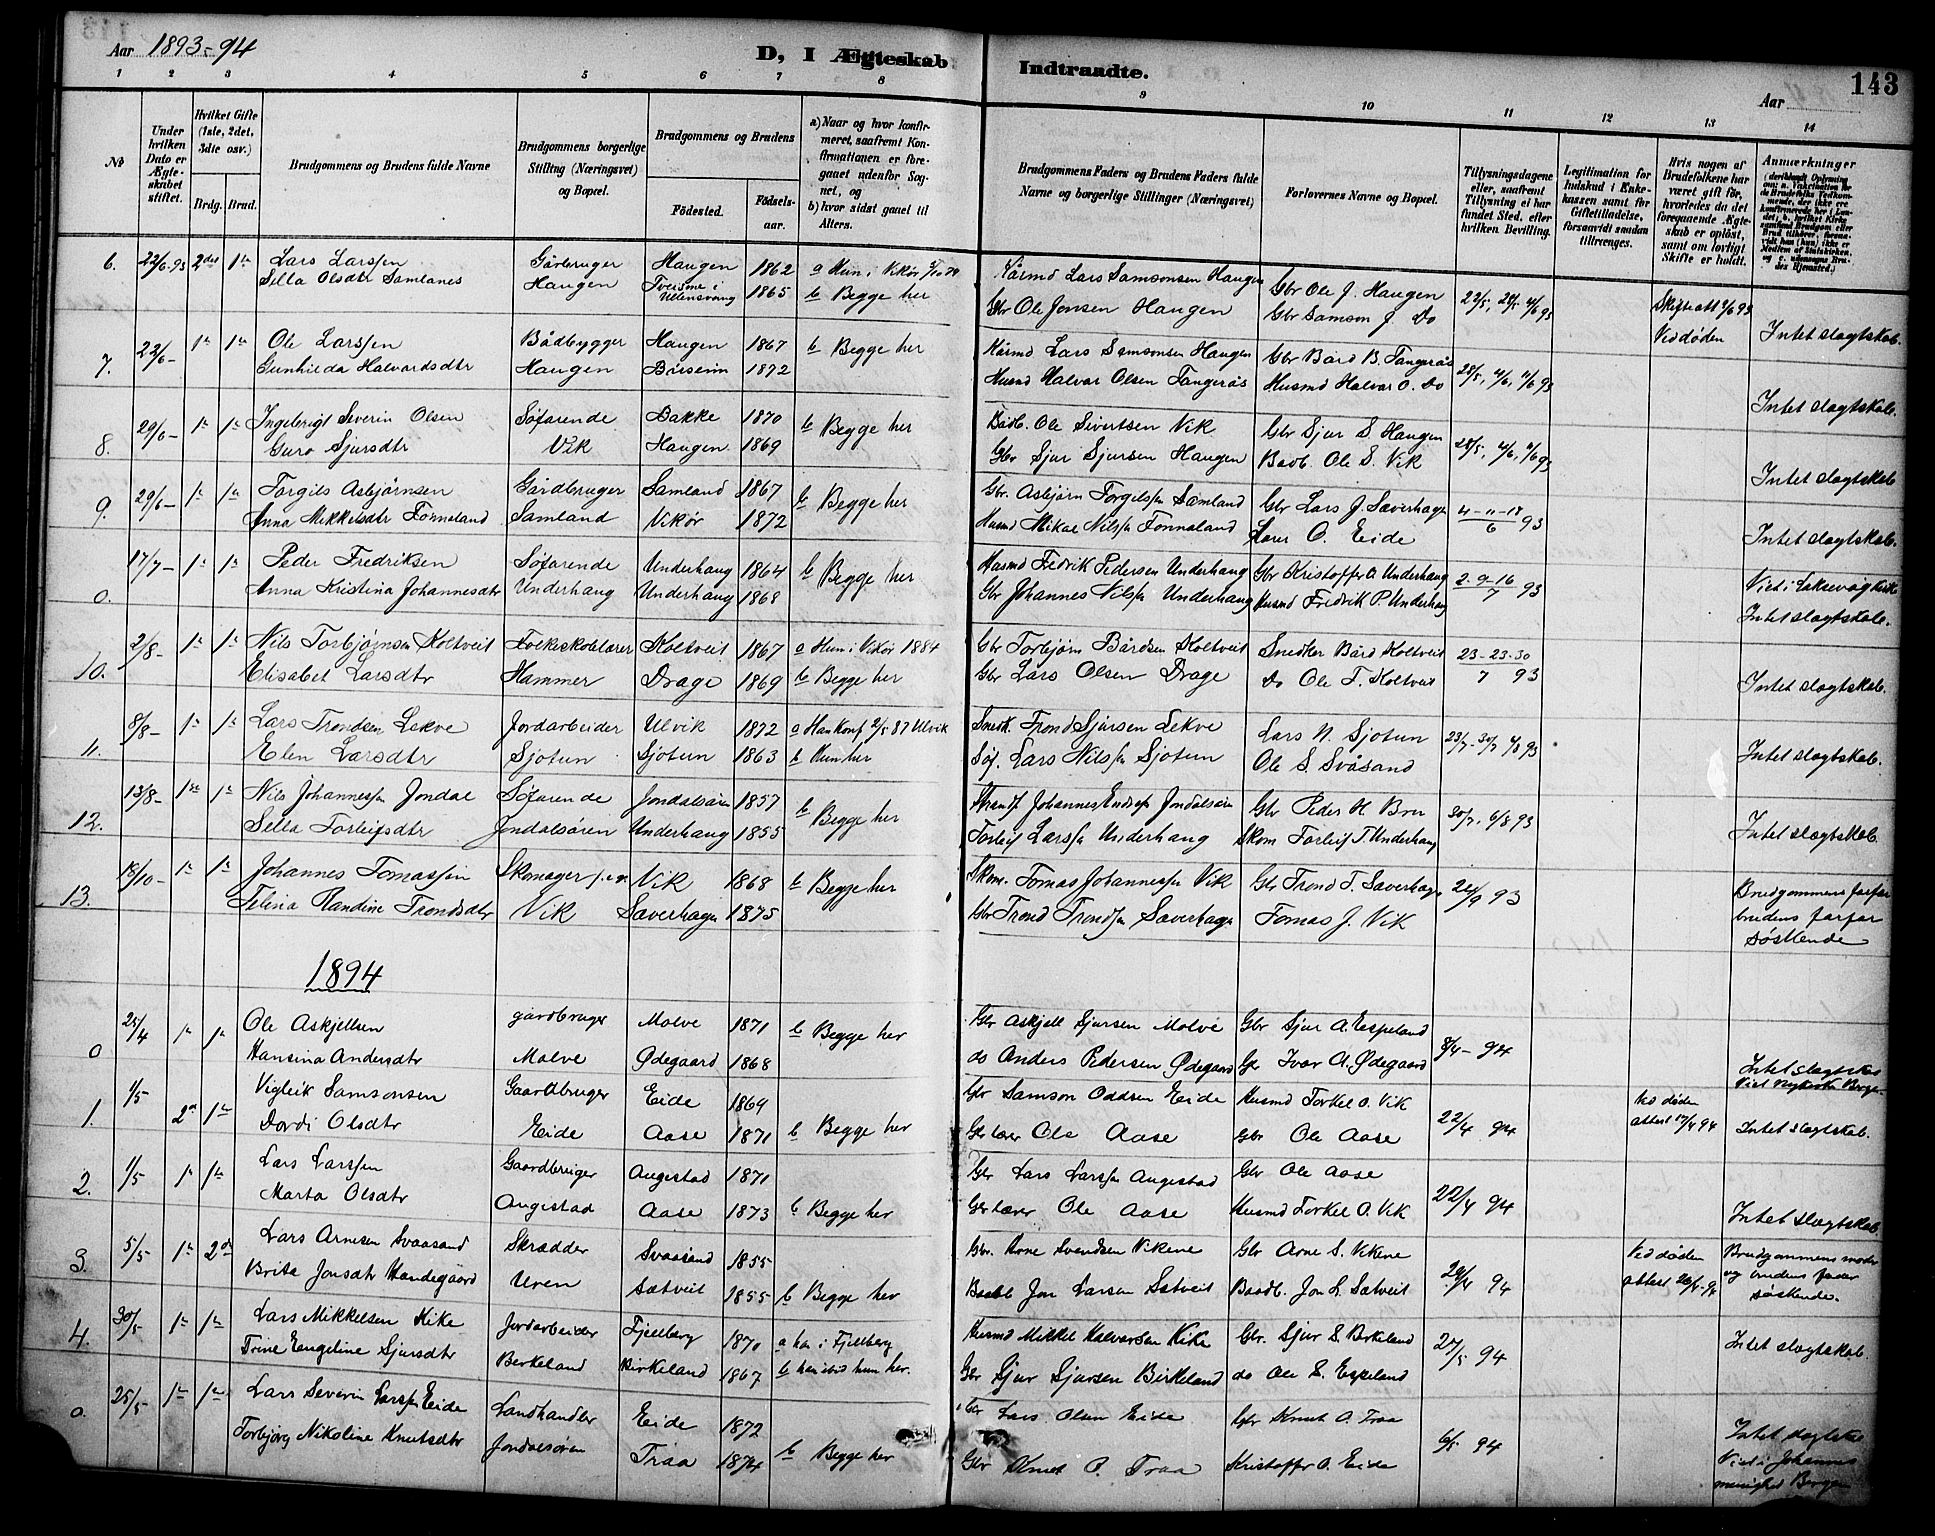 Aar 1893-94
D, I Ægteskab Indtraadte.
Aar
143
1 2 3 4 5 6 7 8 9 10 11 12 13 14
No
Under hvilken Dato er Ægteskabet stiftet.
Hvilket Gifte (1ste, 2det, 3die osv.)
Brdg. Brud.
Brudgommens og Brudens fulde Navne
Brudgommens borgerlige Stilling (Næringsvei) og Bopæl.
Brudgommens og Brudens
Fødested.
Fødselsaar.
a) Naar og hvor konfirmeret, saafremt Konfirmationen er foregaaet udenfor Sognet, og
b) hvor sidst gaaet til Alters.
Brudgommens Faders og Brudens Faders fulde Navne og borgerlige Stillinger (Næringsvei)
Forlovernes Navne og Bopæl.
Tillysningsdagene eller, saafremt Tillysning ei har fundet Sted, efter hvilken Bevilling.
Legitimation for Indskud i Enkekassen samt for Giftetilladelse, forsaavidt saadan tiltrænges.
Hvis nogen af Brudefolkene har været gift før, hvorledes da det foregaaende Ægteskab er opløst, samt om lovligt Skifte er holdt.
Anmærkninger
6. 22/6-93 2det 1ste Lars Larssen Gårbruger Haugen 1862 a Hun i Vikør b Begge her
Sella Olsdtr Samlanes Haugen Ullensvang 1865
Kårmd Lars Samsonsen Haugen Gbr Ole J. Haugen 22/5, 28/5 4/6 93 Skifteatt 2/6 93 Ved døden Intet slægtskab.
Gbr Ole Jonsen Haugen Gbr Samson J. Do
7. 22/6- 1ste 1ste Ole Larssen Bådbygger Haugen 1867 b Begge her
Gunhilda Halvardsdtr Haugen 1872
Kårmd Lars Samsonsen Haugen Gbr Bård B. Tangerås 28/5, 4/6, 11/6 93 Intet slægtskab.
Husmd Halvar Olsen Tangerås Husmd Halvar O. Do
8. 29/6- 1ste 1ste Ingebrigt Severin Olsen Søfarende Bakke 1870 b Begge her
Guro Sjursdtr Vik Haugen 1869
Bådb. Ole Sivertsen Vik Gbr Sjur S. Haugen 28/5, 4/6, 11/6 93 Intet slægtskab
Gbr Sjur Sjursen Haugen Baadb. Ole S. Vik
9. 29/6- 1ste 1ste Torgils Asbjørnsen Gårdbruger Samland 1867 b Begge her
Anna Mikkelsdtr Fonnaland Samland Vikør 1872
Gbr. Asbjørn Torgilssen Samland Gbr Lars J. Saverhagen 4-11-18/6 93 Intet slægtskab.
Husmd Mikal Nilssen Fonnaland O. Eide
0. 17/7- 1ste 1ste Peder Fredriksen Søfarende Underhaug 1864 b Begge her
Anna Kristina Johannesdtr Underhaug Underhaug 1868
Husmd Fedrik Pedersen Underhaug Gbr Kristoffer O Underhaug 2-9-16/7 93 Viet i Laksevåg kirke
Gbr Johannes Nilssen Underhaug Husmd Fredrik P. Underhaug Intet slægtskab.
10. 2/8- 1ste 1ste Nils Torbjørnsen Koltveit Folkeskolelærer Koltveit 1867 a Hun i Vikør 1884
Elisabet Larsdtr Hammer Drage 1869 b Begge her
Gbr Torbjørn Bårdsen Koltveit Snedker Bård Koltveit 23-23-30/7 93 Intet slægtskab.
Gbr Lars Olsen Drage Do Ole T. Koltveit
11. 8/8- 1ste 1ste Lars Trondsen Lekve Jordarbeider Ulvik 1872 a Han Konf 2/5 87 Ulvik
Elen Larsdtr Sjotun Sjotun 1863 b Hun her
Smedk Trond Sjursen Lekve Lars N. Sjotun 23/7-30/7 4/8 93 Intet slægtskab.
Søf. Lars Nilssen Sjotun Ole S. Svåsand
12. 13/8- 1ste 1ste Nils Johannessen Jondal Søfarende Jondalsøren 1857 b Begge her
Sella Torleifsdtr Jondalsören Underhaug 1855
Strandf Johannes Endresen Jondalsøren Gbr Peder H. Bru 30/7, 6/8 93 Intet slægtskab.
Torleif Larssen Underhaug Skom Torleif T. Underhaug
13. 18/10- 1ste 1ste Johannes Tomassen Skomager Vik 1868 b Begge her
Telina Randine Trondsdtr Vik Saverhagen 1875
Skom. Tomas Johannessen Vik Gbr Trond T. Saverhagen 24/9 93 Brudgommens farfar
Gbr Trond Trondsen Saverhagen Tomas J. Vik brudens farfar søskende
1894
0 25/4 1 1 Ole Askjellsen gårdbruger Molve 1871 b Begge her
Hansina Andersdtr Molve Ødegaard 1868
Gbr Askjell Sjursen Molve Gbr Sjur A. Espeland 8/4-94 Intet slægtskab
do Anders Pedersen Ødegaard Gbr Ivar A. Ødegaard Viet Nykirken Bergen
1. 1/5 2 1ste Vigleik Samsonsen Gaardbruger Eide 1869 b Begge her
Dordi Olsdtr Eide Aase 1871
Gbr Samson Oddsen Eide Husmd Torkel O. Vik 22/4 94 Ved døden attest 17/4 94 Intet slægtskab.
Ole Aase Gbr Ole Aase
2. 1/5 1 1ste Lars Larssen Gaardbruger Augestad 1871 b Begge her
Marta Olsdtr Augestad Aase 1873
Gbr Lars Larssen Augestad Gbr Ole Aase 22/4 94 Intet slægtskab.
Ole Aase Husmd Torkel O. Vik
3. 5/5 1ste 2det Lars Arnesen Svaasand Skrædder Svaasand 1855
Brita Jonsdtr Handegaard Uren Satveit 1855 b Begge her
Gbr. Arne Svendsen Vikene Gbr Arne S. Vikene 94 Ved døden attest Brudgommens moder
Baadb Jon Larsen Satveit Baadb. Jon L. Satveit og brudens fader søskende.
4. 30/5 1ste 1ste Lars Mikkelsen Kike Jordarbeider Fjelberg 1870 a han i Fjelberg
Trine Engeline Sjursdtr Berkeland Birkeland 1867 b han ibid hun her.
Husmd Mikkel Halvorsen Kike Gbr. Sjur S. Birkeland 27/5 94 Intet slægtskab.
Gbr Sjur Sjursen Birkeland do Ole S. Espeland
0. 25/5 1ste 1ste Lars Severin Larssen Eide Landhandler Eide 1872
Torbjørg Nikoline Knutsdtr Jondalsøren Traa 1874 b Begge her
Gbr Lars Olsen Eide Gbr Knut O. Traa 6/5 94 Intet slægtskab
Gbr Knut P. Traa Kristoffer O. Eide Viet i Johannes menighed Bergen